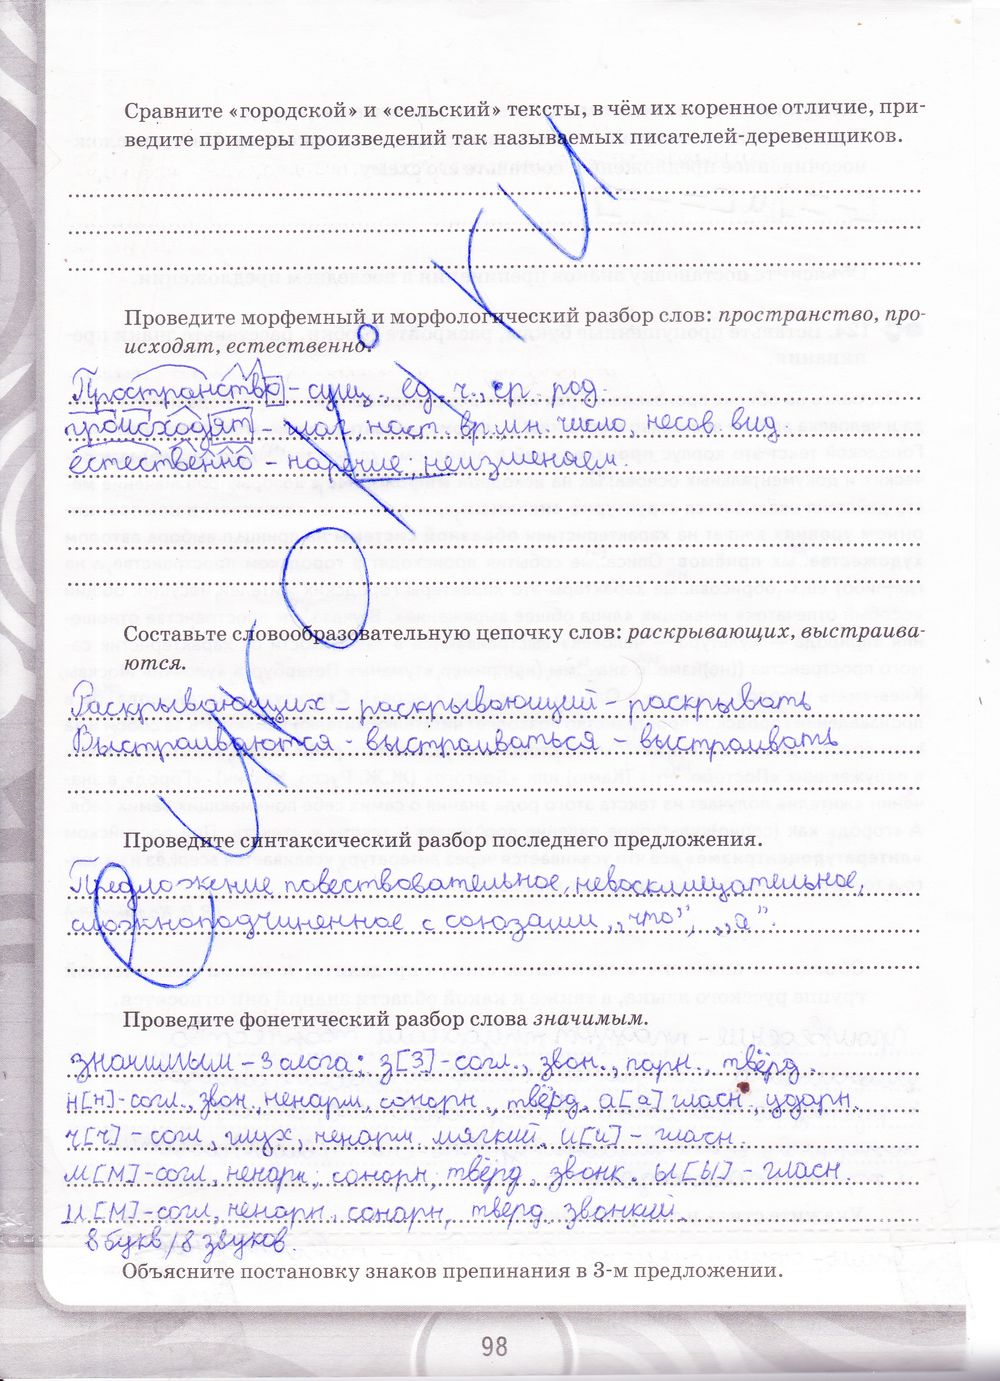 Сравните «городской» и «сельский» тексты, в чём их коренное отличие, при-
ведите примеры произведений так называемых писателей-деревенщиков.
Проведите морфемный и морфологический разбор слов: пространство, про-
исходят, естественно.
Пространство - сущ., ед. ч., ср. род.
происходят - глаг, наст. вр. мн. число, несов. вид
естественно - наречие, неизменяем.
Составьте словообразовательную цепочку слов: раскрывающих, выстраива-
ются.
Раскрывающих - раскрывающий - раскрывать
Выстраиваются - выстраиваться - выстраивать
Проведите синтаксический разбор последнего предложения.
Предложение повествовательное, невосклицательное,
сложноподчиненное с союзами „что", „а".
Проведите фонетический разбор слова значимым.
значимым - 3 слога; з[З] - согл., звон., парн., твёрд.
н[н]-согл., звон, ненарн, сонорн., твёрд. а[а] гласн, ударн.
ч[ч] - согл, глух, ненарн. мягкий. и[и] - гласн.
м[м]-согл, ненарн, сонорн, твёрд, звонк. ы[ы] - гласн.
м[м]-согл, ненарн, сонорн, твёрд, звонкий.
8 букв / 8 звуков.
Объясните постановку знаков препинания в 3-м предложении.
98